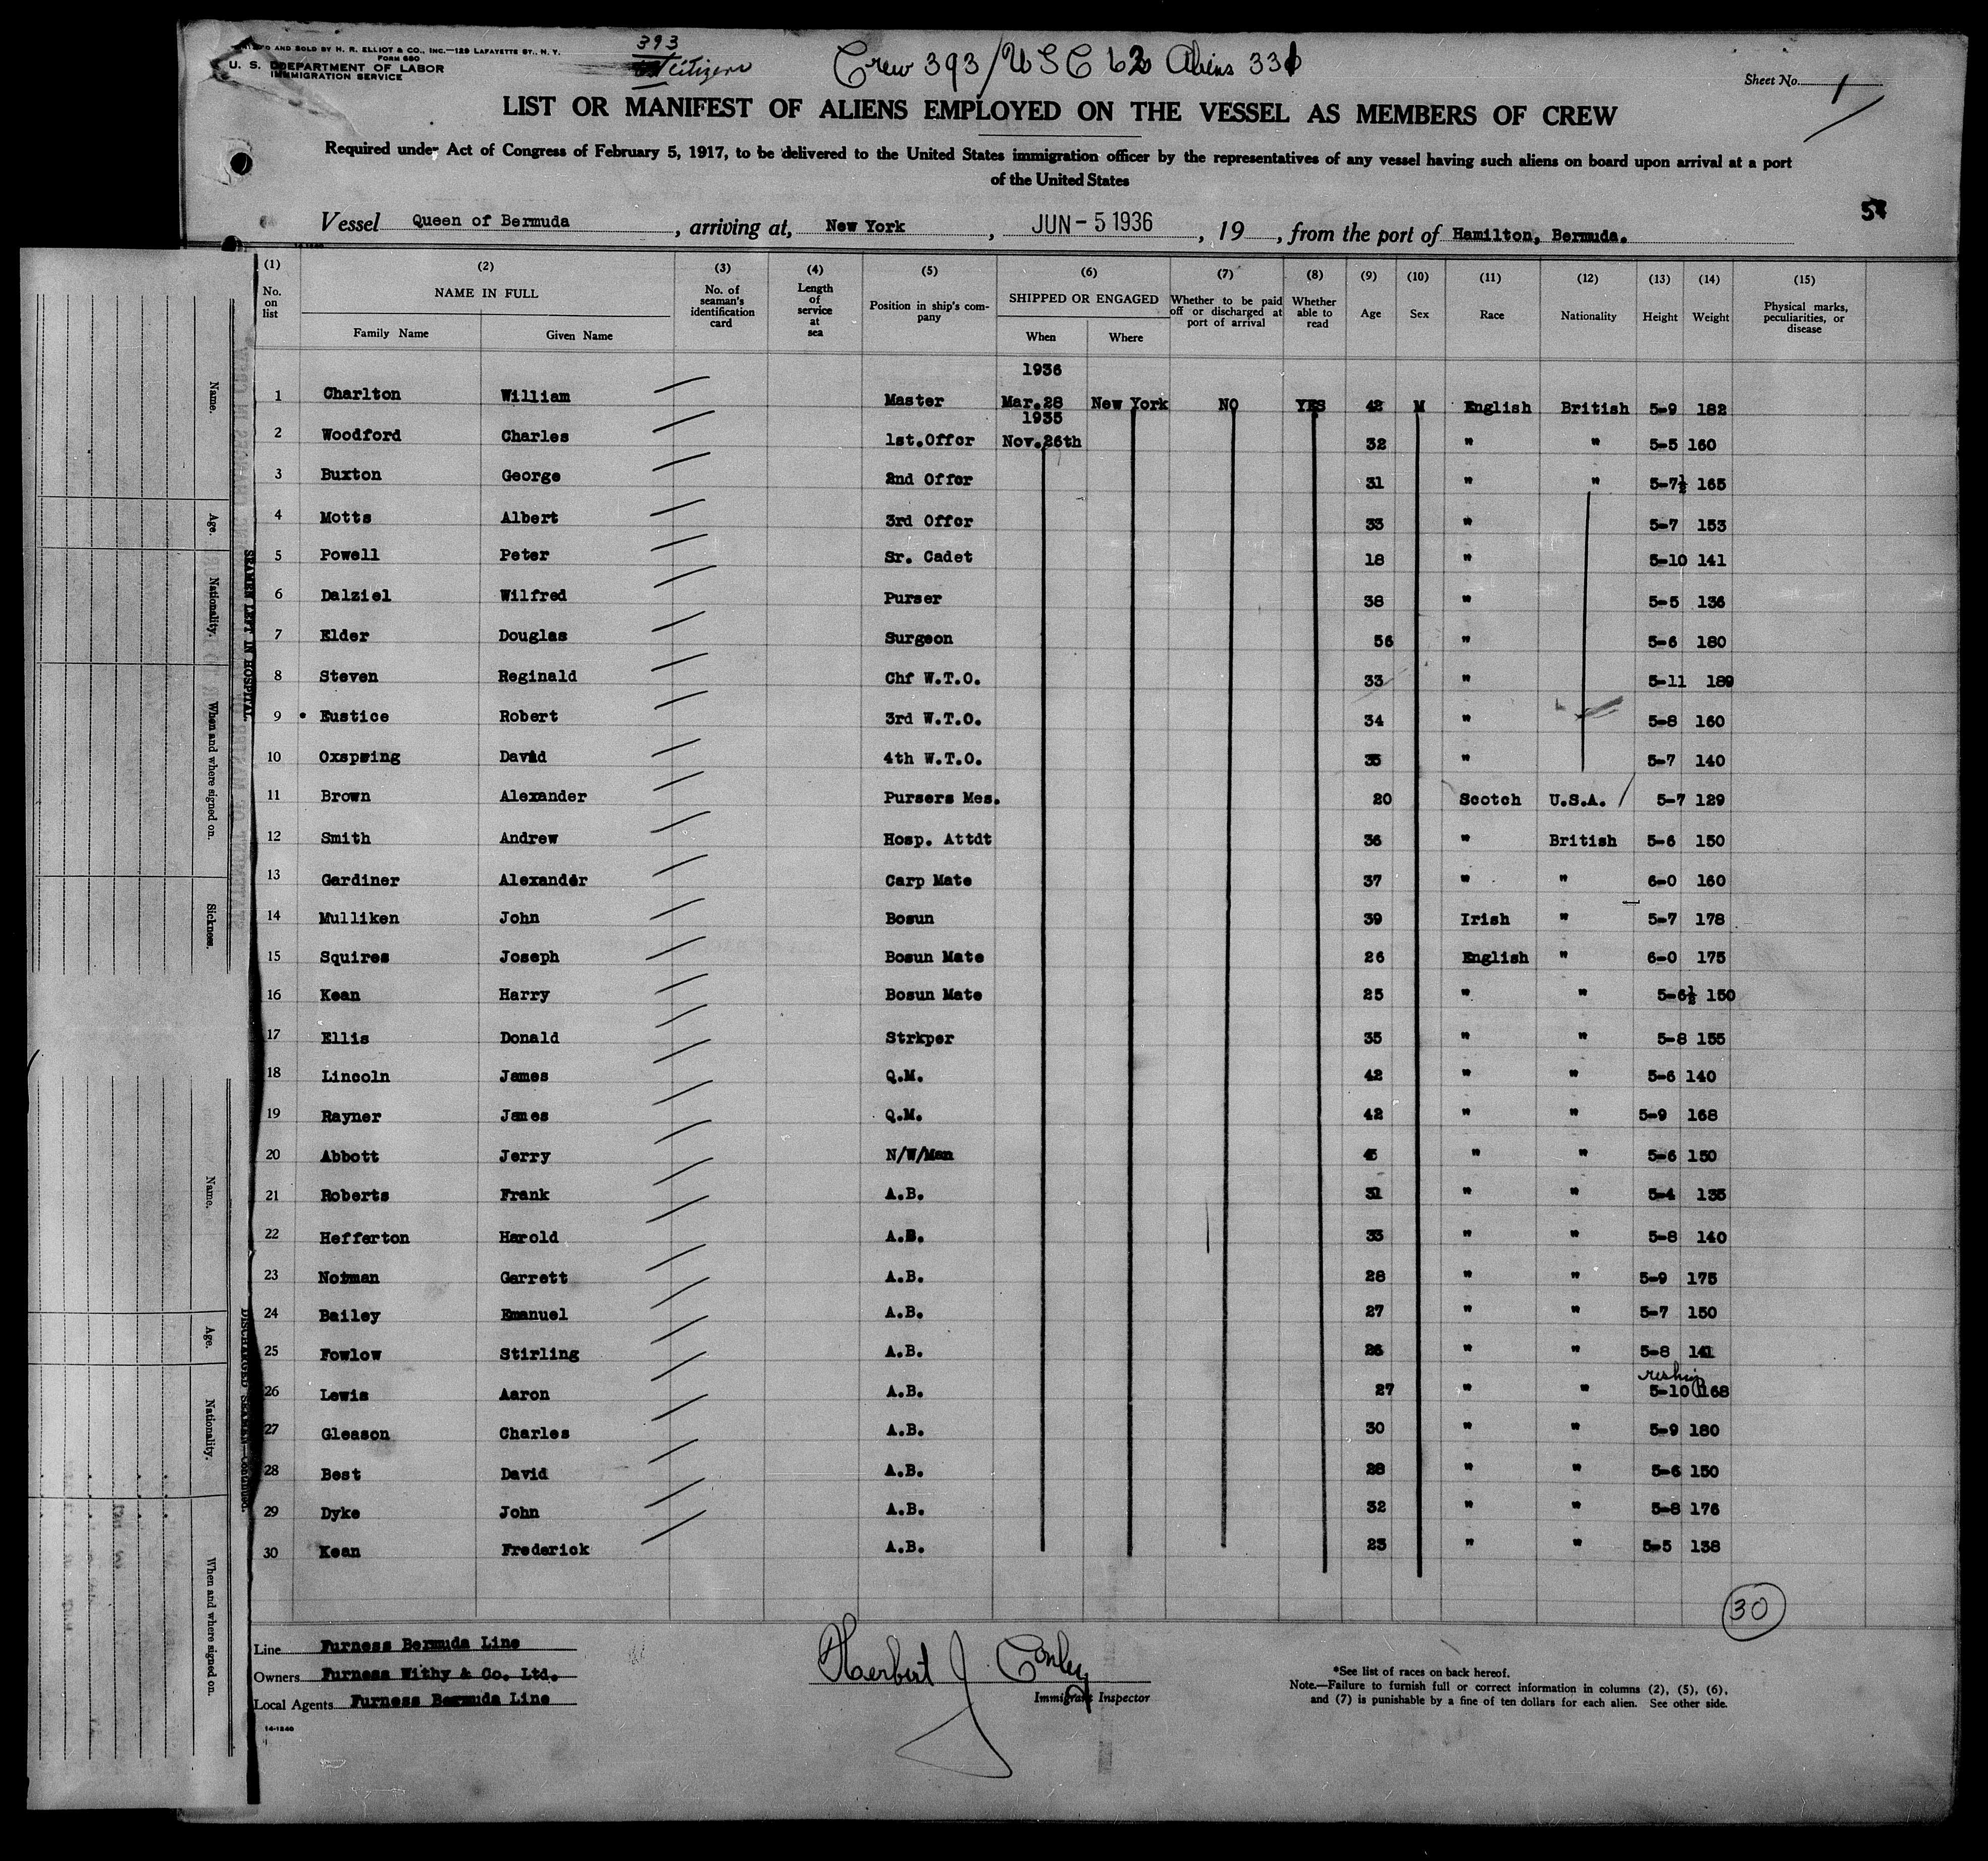 PRINTED AND SOLD BY H. R. ELLIOT & CO., INC.—129 LAFAYETTE ST., N. Y.
FORM 680
U. S. DEPARTMENT OF LABOR
IMMIGRATION SERVICE
393
citizens
Crew 393/USC 62 Aliens 331
Sheet No. 1
LIST OR MANIFEST OF ALIENS EMPLOYED ON THE VESSEL AS MEMBERS OF CREW
Required under Act of Congress of February 5, 1917, to be delivered to the United States immigration officer by the representatives of any vessel having such aliens on board upon arrival at a port
of the United States
Vessel Queen of Bermuda, arriving at, New York, JUN - 5 1936, 19 , from the port of Hamilton, Bermuda.
14-1240
(1) (2) (3) (4) (5) (6) (7) (8) (9) (10) (11) (12) (13) (14) (15)
No. on list NAME IN FULL No. of seaman's identification card Length of service at sea Position in ship's company SHIPPED OR ENGAGED Whether to be paid off or discharged at port of arrival Whether able to read Age Sex Race Nationality Height Weight Physical marks, peculiarities, or disease
Family Name Given Name When Where
1936
1 Charlton William Master Mar.28 New York NO YES 42 M English British 5-9 182
1935
2 Woodford Charles 1st.Offcr Nov.26th 32 " " 5-5 160
3 Buxton George 2nd Offcr 31 " " 5-7½ 165
4 Motts Albert 3rd Offcr 33 " 5-7 153
5 Powell Peter Sr. Cadet 18 " 5-10 141
6 Dalziel Wilfred Purser 38 " 5-5 136
7 Elder Douglas Surgeon 56 " 5-6 180
8 Steven Reginald Chf W.T.O. 33 " 5-11 189
9 Eustice Robert 3rd W.T.O. 34 " 5-8 160
10 Oxspring David 4th W.T.O. 35 " 5-7 140
11 Brown Alexander Pursers Mes. 20 Scotch U.S.A. 5-7 129
12 Smith Andrew Hosp. Attdt 36 " British 5-6 150
13 Gardiner Alexander Carp Mate 37 " " 6-0 160
14 Mulliken John Bosun 39 Irish " 5-7 178
15 Squires Joseph Bosun Mate 26 English " 6-0 175
16 Kean Harry Bosun Mate 25 " " 5-6½ 150
17 Ellis Donald Strkper 35 " " 5-8 155
18 Lincoln James Q.M. 42 " " 5-6 140
19 Rayner James Q.M. 42 " " 5-9 168
20 Abbott Jerry N/W/Man " " 5-6 150
21 Roberts Frank A.B. 31 " " 5-4 135
22 Hefferton Harold A.B. 33 " " 5-8 140
23 Garrett A.B. 28 " " 5-9 175
24 Bailey Emanuel A.B. 27 " " 5-7 150
25 Fowlow Stirling A.B. 26 " " 5-8 141
reship
26 Lewis Aaron A.B. 27 " " 5-10 168
27 Gleason Charles A.B. 30 " " 5-9 180
28 Best David A.B. 28 " " 5-6 150
29 Dyke John A.B. 32 " " 5-8 176
30 Kean Frederick A.B. 23 " " 5-5 138
30
Line Furness Bermuda Line
Owners Furness Withy & Co. Ltd.
Local Agents Furness Bermuda Line
14-1240
Herbert J. Conley
Immigrant Inspector
*See list of races on back hereof.
Note.—Failure to furnish full or correct information in columns (2), (5), (6),
and (7) is punishable by a fine of ten dollars for each alien. See other side.
SEAMEN LEFT IN HOSPITAL
Name.
Age.
Nationality.
When and where signed on.
Sickness.
DISCHARGED SEAMEN—Continued.
Name.
Age.
Nationality.
When and where signed on.